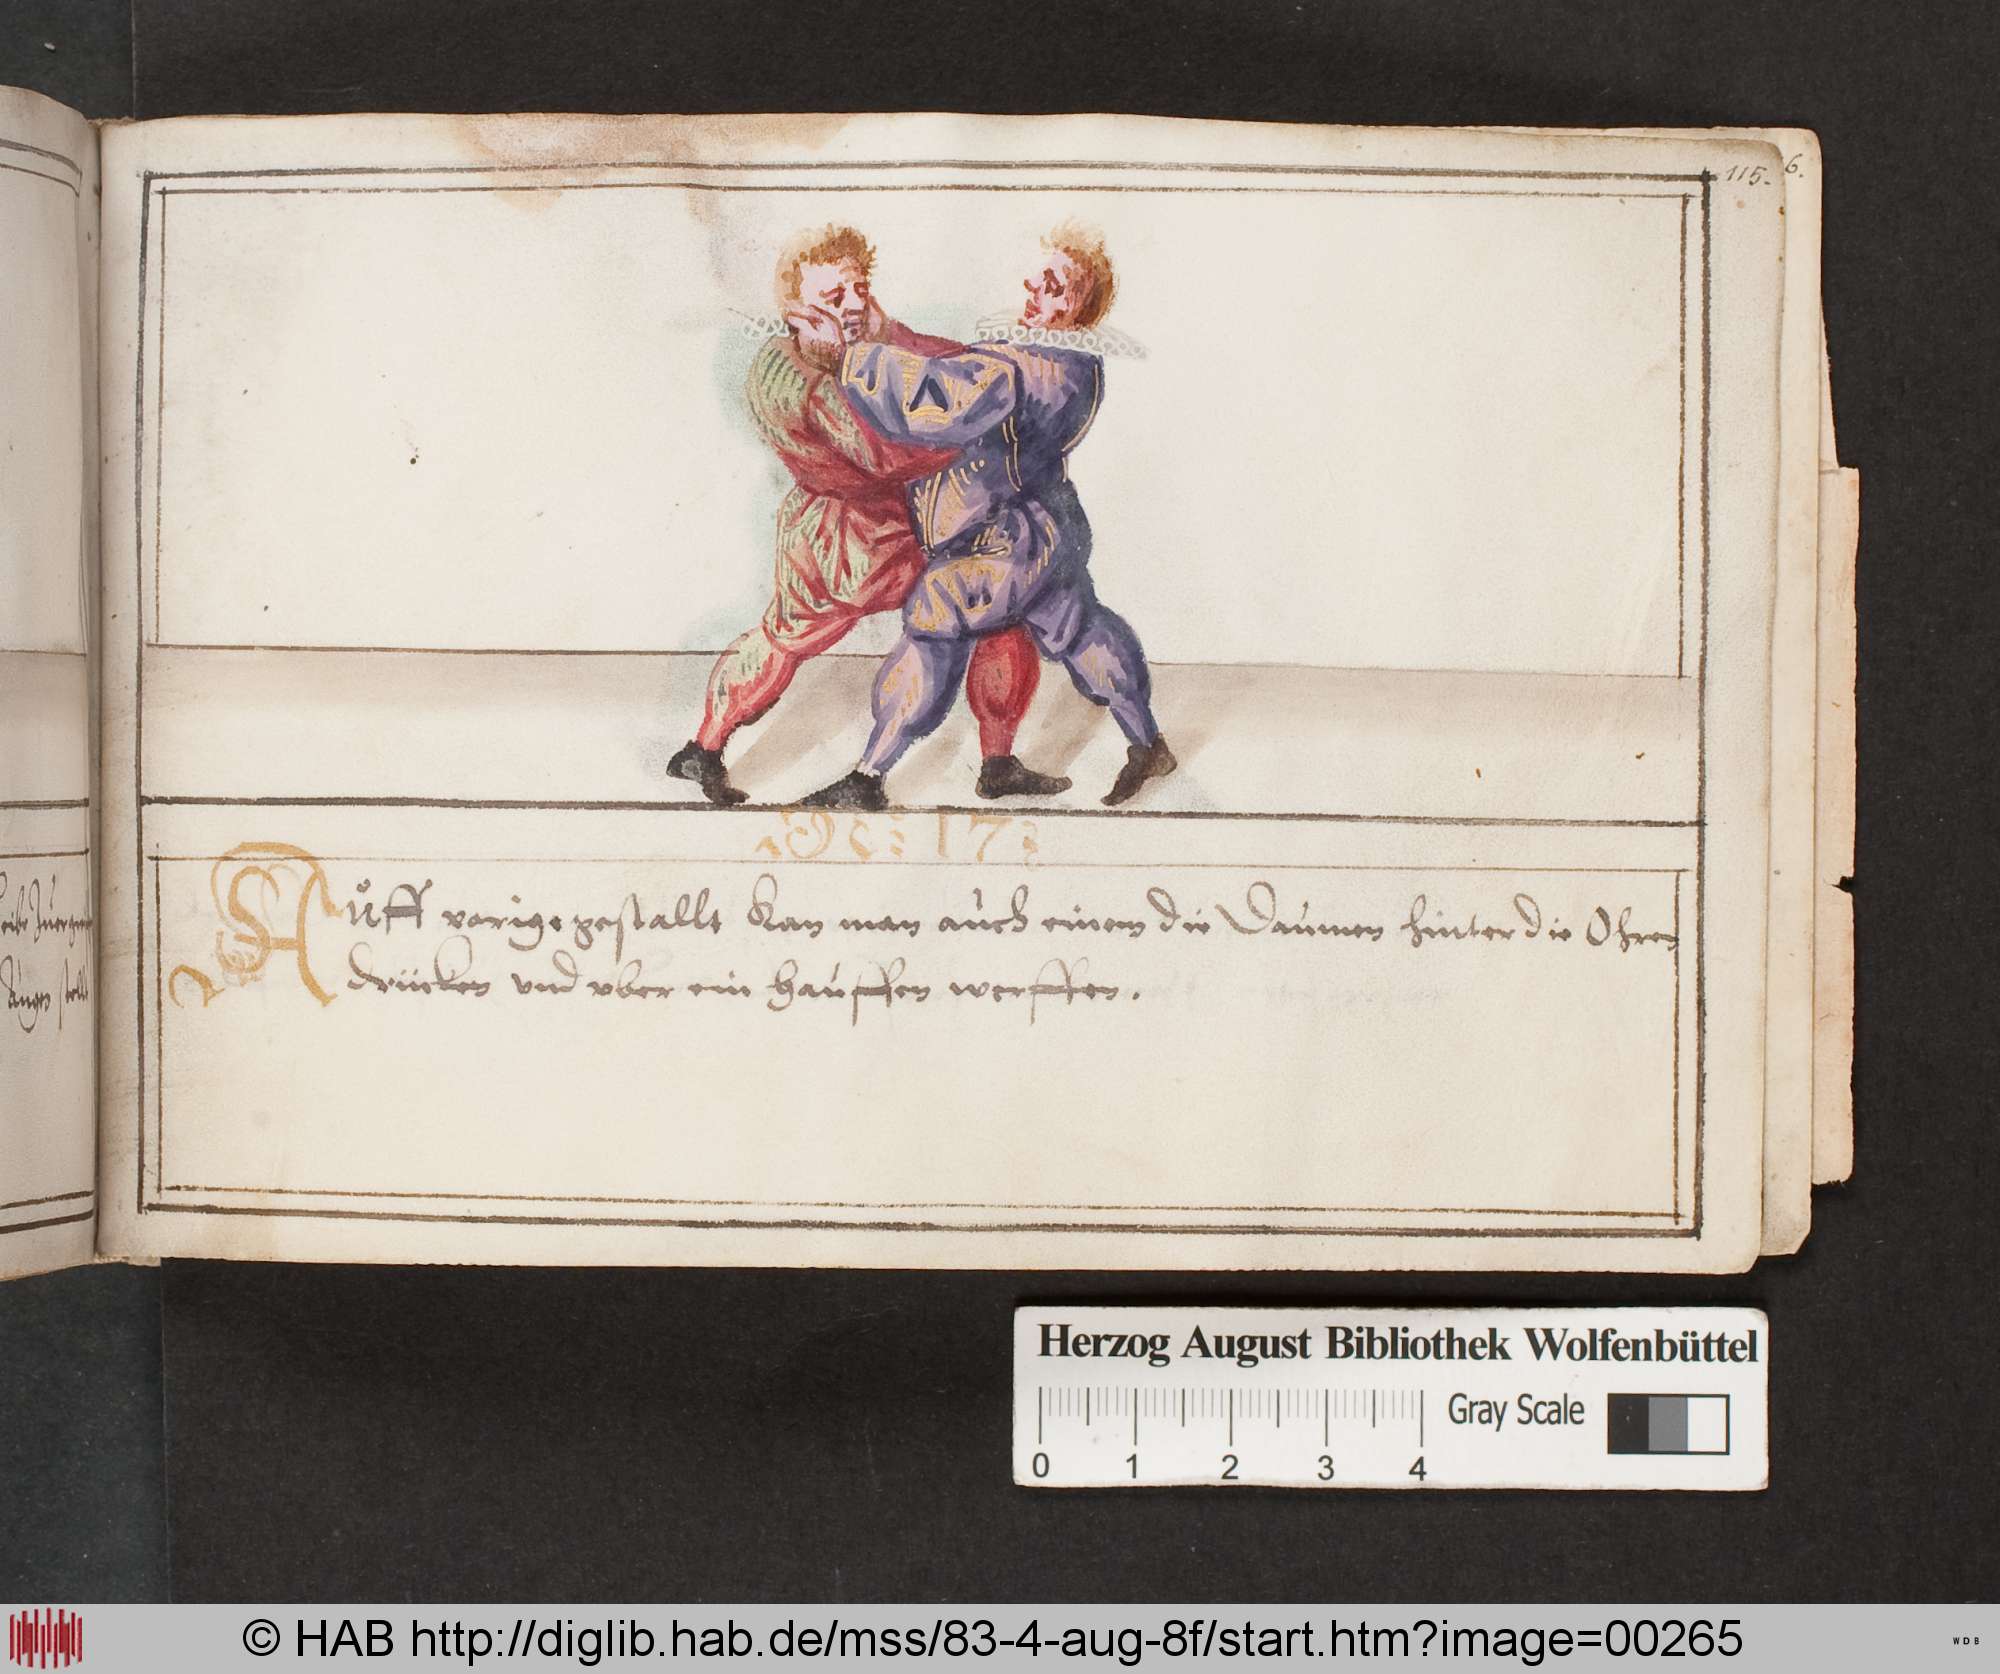 115.
6.
17
Auff vorige gestallt kan man auch einem die Daumen hinter die Ohren
drücken vnd vber ein hauffen werffen.
Auges stell
Herzog August Bibliothek Wolfenbüttel
Gray Scale
0 1 2 3 4
© HAB http://diglib.hab.de/mss/83-4-aug-8f/start.htm?image=00265
WDB